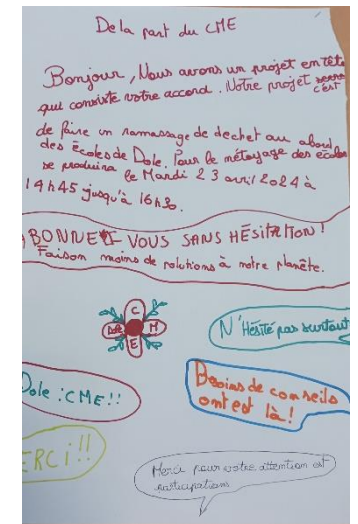 De la part du CME
Bonjour, Nous avons un projet en tête
qui consiste votre accord. Notre projet
c'est
de faire un ramassage de dechet au abord
des Écoles de Dole. Pour le métoyage des écoles
se produira le Mardi 23 avril 2024 à
14h45 jusqu'à 16h30.
ABONNE VOUS SANS HÉSITATION!
Faison moins de polutions à notre planête.
C
Dole M
E
N'Hésité pas surtout
Dole : CME!!
Besoins de conseils
ont est là!
ERCI!!
Merci pour votre attention et
participations